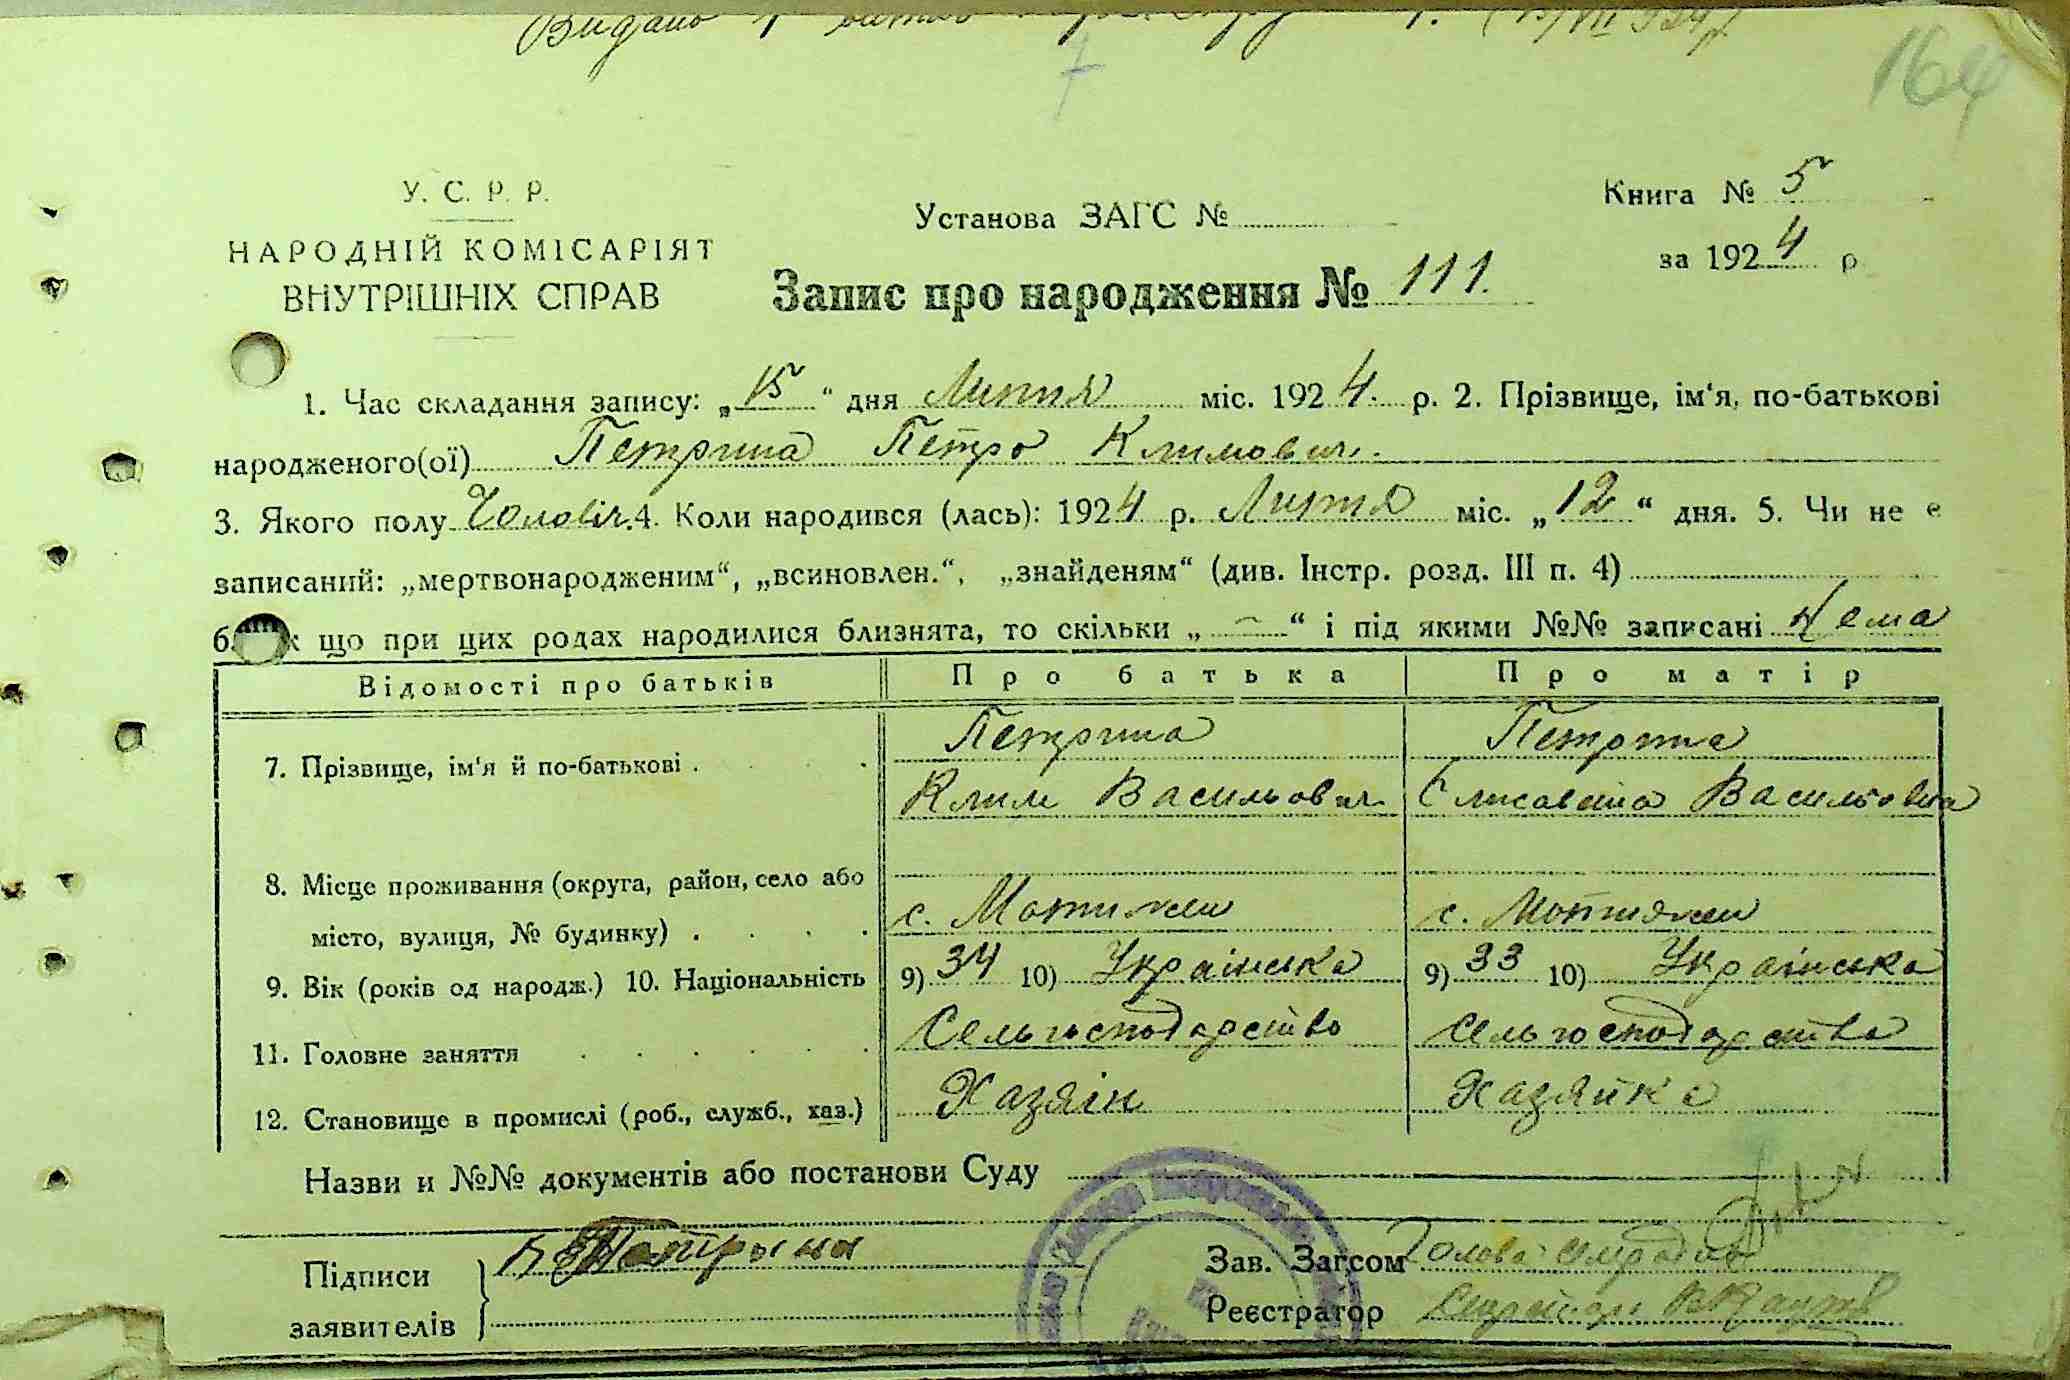 Видано
164
У. С. Р. Р.
НАРОДНІЙ КОМІСАРІЯТ
ВНУТРІШНІХ СПРАВ
Установа ЗАГС №
Книга № 5
за 1924 р.
Запис про народження № 111.
1. Час складання запису: „15“ дня Липня міс. 1924. р. 2. Прізвище, ім'я, по-батькові
народженого(ої) Петрина Петро Климович.
3. Якого полу Чоловіч. 4. Коли народився (лась): 1924 р. Липня міс. „12“ дня. 5. Чи не є
записаний: „мертвонародженим“, „всиновлен.“, „знайденям“ (див. Інстр. розд. III п. 4)
що при цих родах народилися близнята, то скільки „ - “ і під якими №№ записані Нема
Відомості про батьків Про батька Про матір
Петрина Петрина
7. Прізвище, ім'я й по-батькові .
Клим Васильович Єлисавета Васильовна
8. Місце проживання (округа, район, село або
місто, вулиця, № будинку) . с. Мотижин с. Мотижин
9. Вік (років од народж.) 10. Національність 9) 34 10) Українська 9) 33 10) Українська
11. Головне заняття Сельгосподарство Сельгосподарство
12. Становище в промислі (роб., служб., хаз.) Хазяін Хазяйка
Назви и №№ документів або постанови Суду
Підписи
заявителів
Петрына
Зав. Загсом Голова
Реєстратор Секретарь